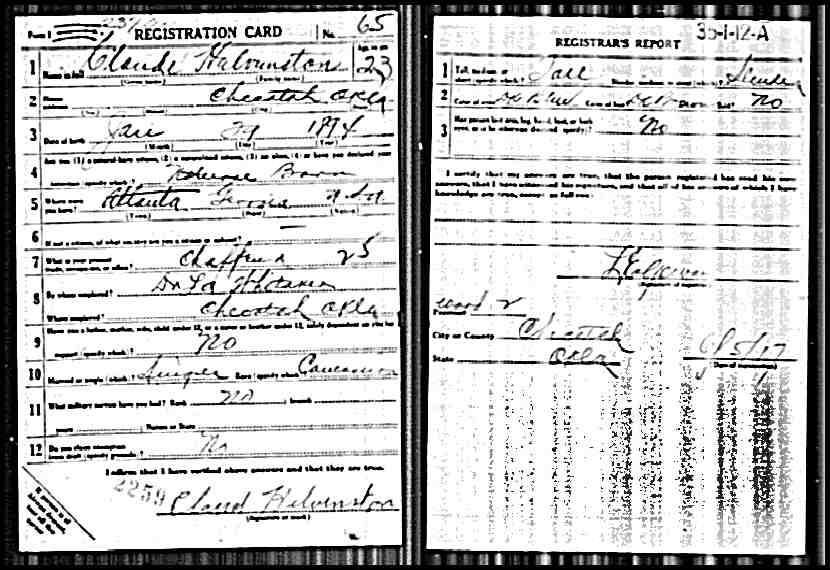 Form 1
REGISTRATION CARD No. 65
1 Name in full Claude Halvinston Age, in yrs 23
(Given name) (Family name)
2 Home address Checotah Okla
3 Date of birth Jan 29 1894
(Month) (Day) (Year)
4 Are you (1) a natural-born citizen, (2) a naturalized citizen, (3) an alien, (4) or have you declared your
intention (specify which)?
5 Where were you born? Atlanta Georgia
(Town) (State) (Nation)
6 If not a citizen, of what country are you a citizen or subject? —
7 What is your present trade, occupation, or office? 25
8 By whom employed?
Where employed? Checotah Okla
9 Have you a father, mother, wife, child under 12, or a sister or brother under 12, solely dependent on you for
support (specify which)? No
10 Married or single (which)? Race (specify which)? Caucasian
11 What military service have you had? Rank no branch
years Nation or State
12 Do you claim exemption from draft (specify grounds)? No
I affirm that I have verified above answers and that they are true.
2259 Claud Halvinston
(Signature or mark)
35-1-12-A
REGISTRAR'S REPORT
1 Tall, medium, or short (specify which)? Tall Slender, medium, or stout (which)? Slender
2 Color of eyes? Color of hair? Bald? No
3 Has person lost arm, leg, hand, foot, or both eyes, or is he otherwise disabled (specify)? No
I certify that my answers are true, that the person registered has read his own
answers, that I have witnessed his signature, and that all of his answers of which I have
knowledge are true, except as follows:
(Signature of registrar)
Precinct ward 2
City or County Checotah
State Okla 6/5/17
(Date of registration)